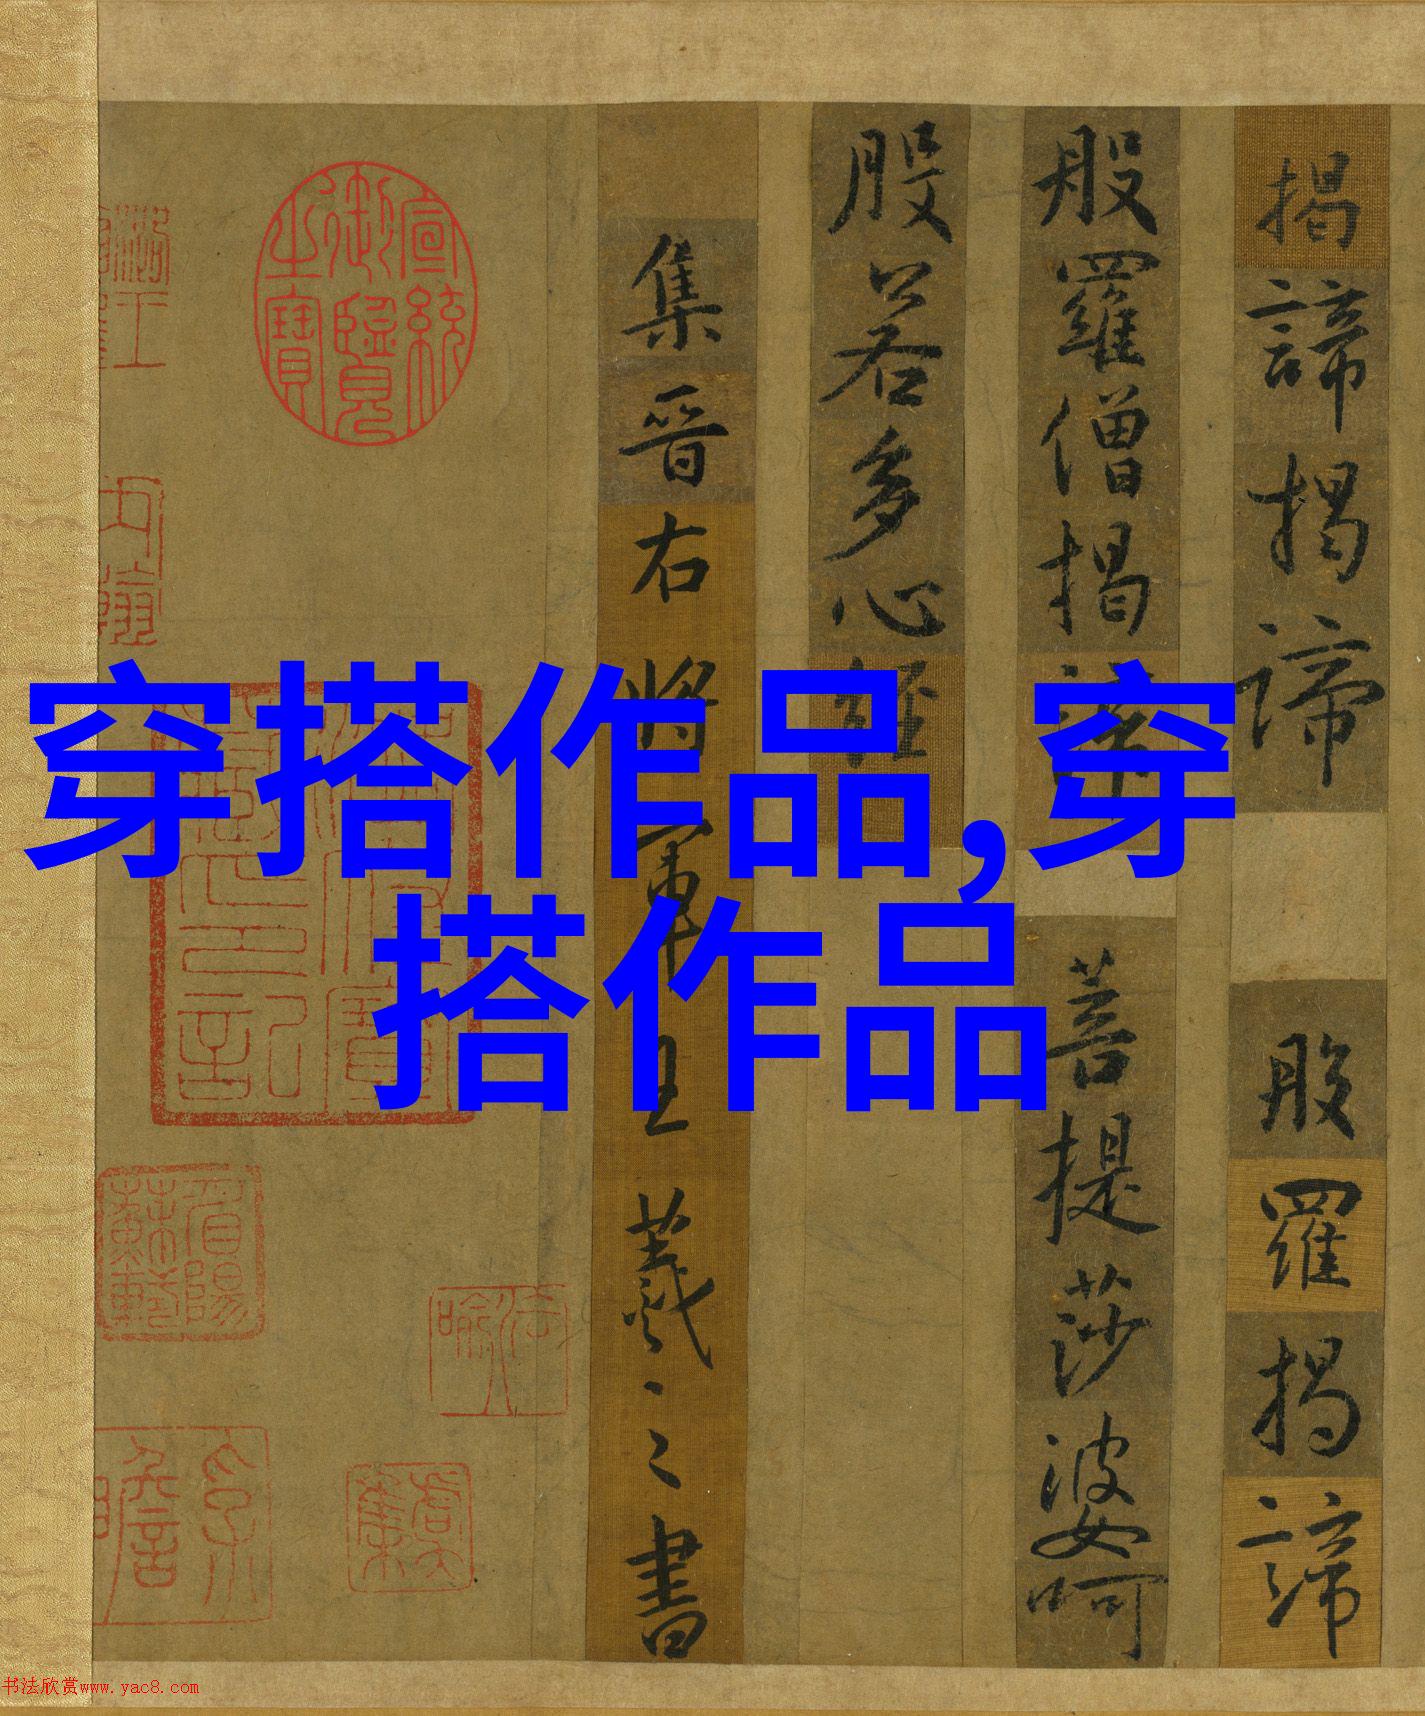 揭諦揭諦 般羅揭諦
般羅僧揭諦 菩提莎婆呵
般若多心經
集晉右將軍王羲之書
宣統御覽之寶
穿搭作品,穿
搭作品
书法欣赏www.yac8.com